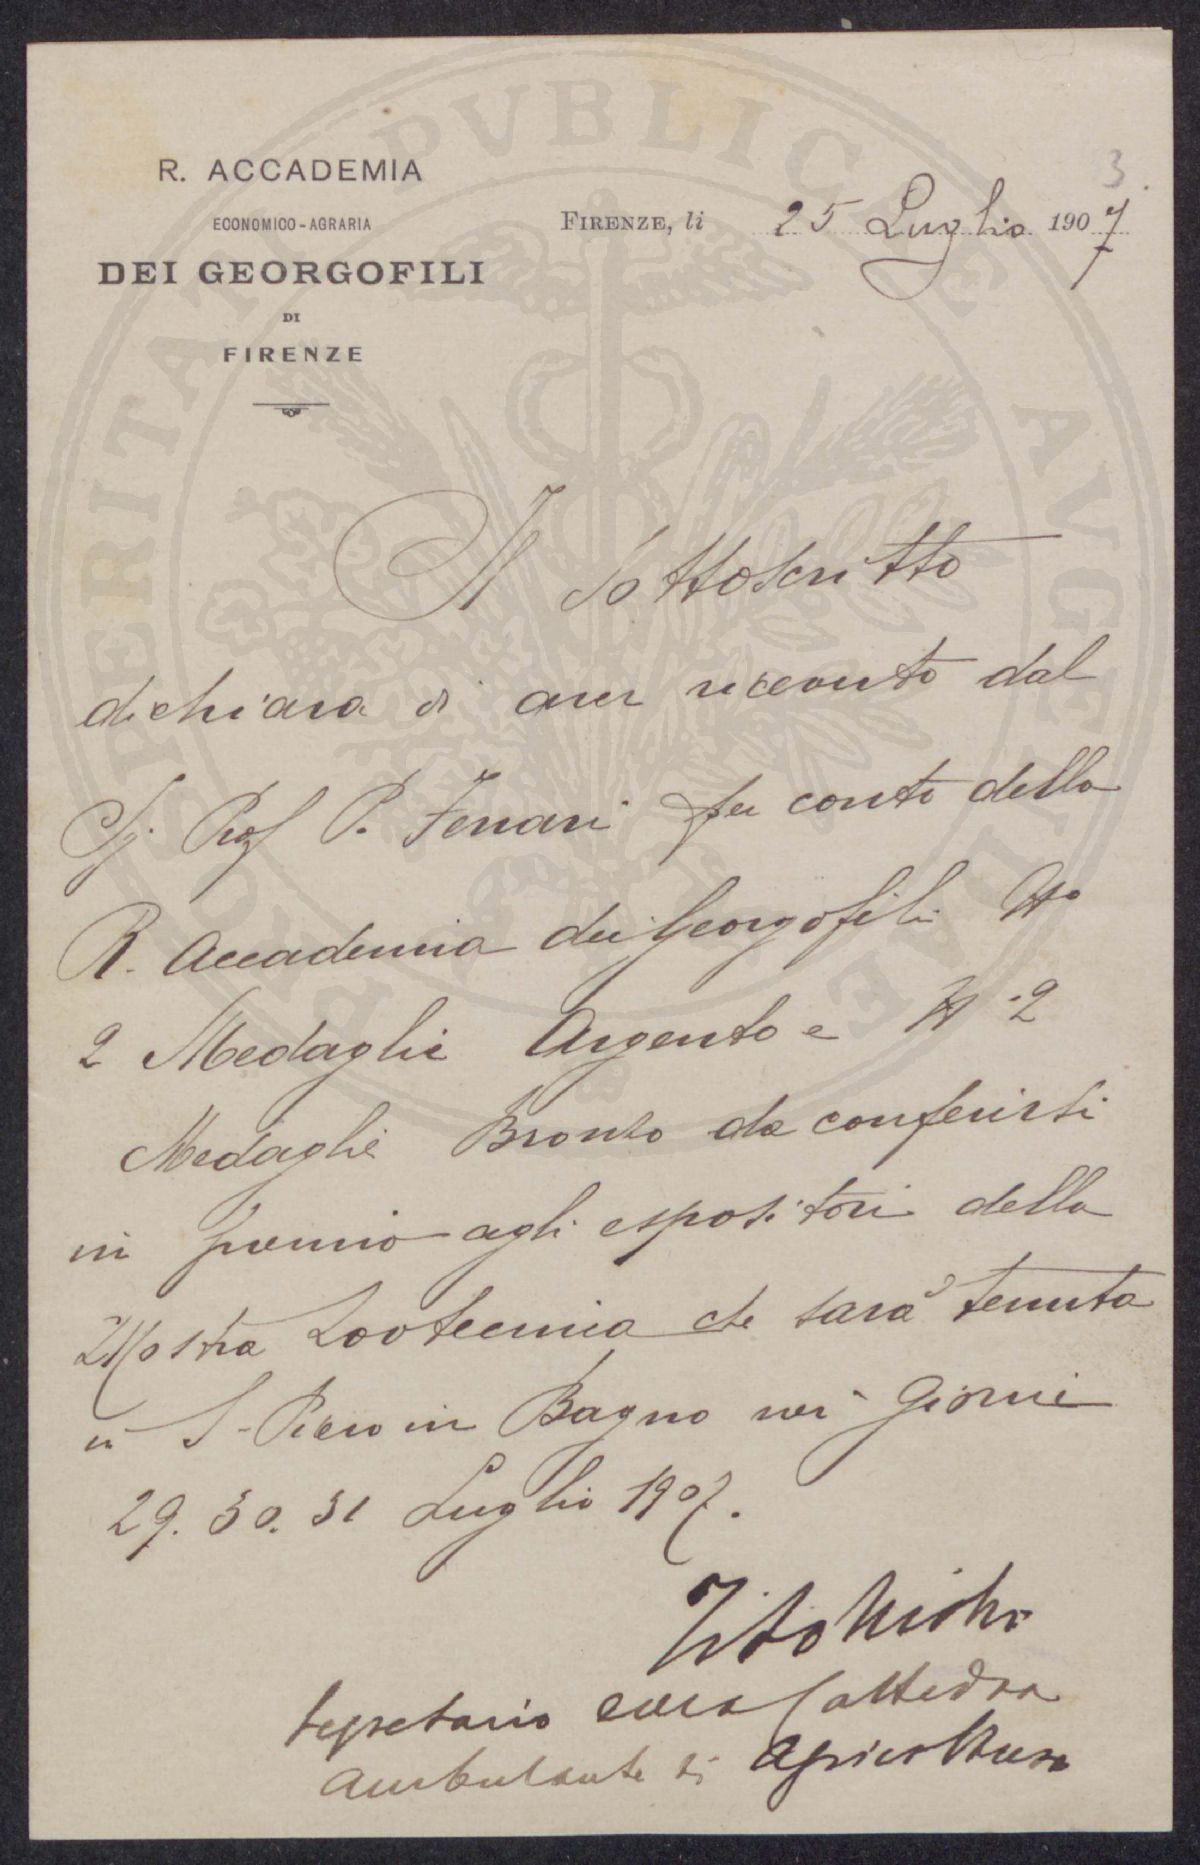 3.
R. ACCADEMIA
ECONOMICO-AGRARIA
DEI GEORGOFILI
DI
FIRENZE
FIRENZE, li 25 Luglio 1907
Il Sottoscritto
dichiara di aver ricevuto dal
Sig. Prof P. Ferrari per conto della
R. Accademia dei Georgofili No
2 Medaglie Argento e No 2
Medaglie Bronzo da conferirsi
in premio agli espositori della
Mostra Zootecnica che sarà tenuta
in S. Piero in Bagno nei Giorni
29. 30. 31 Luglio 1907.
Tito
Segretario Cattedra
Ambulante di Agricoltura
PROSPERITATI PVBLICAE AVGENDAE